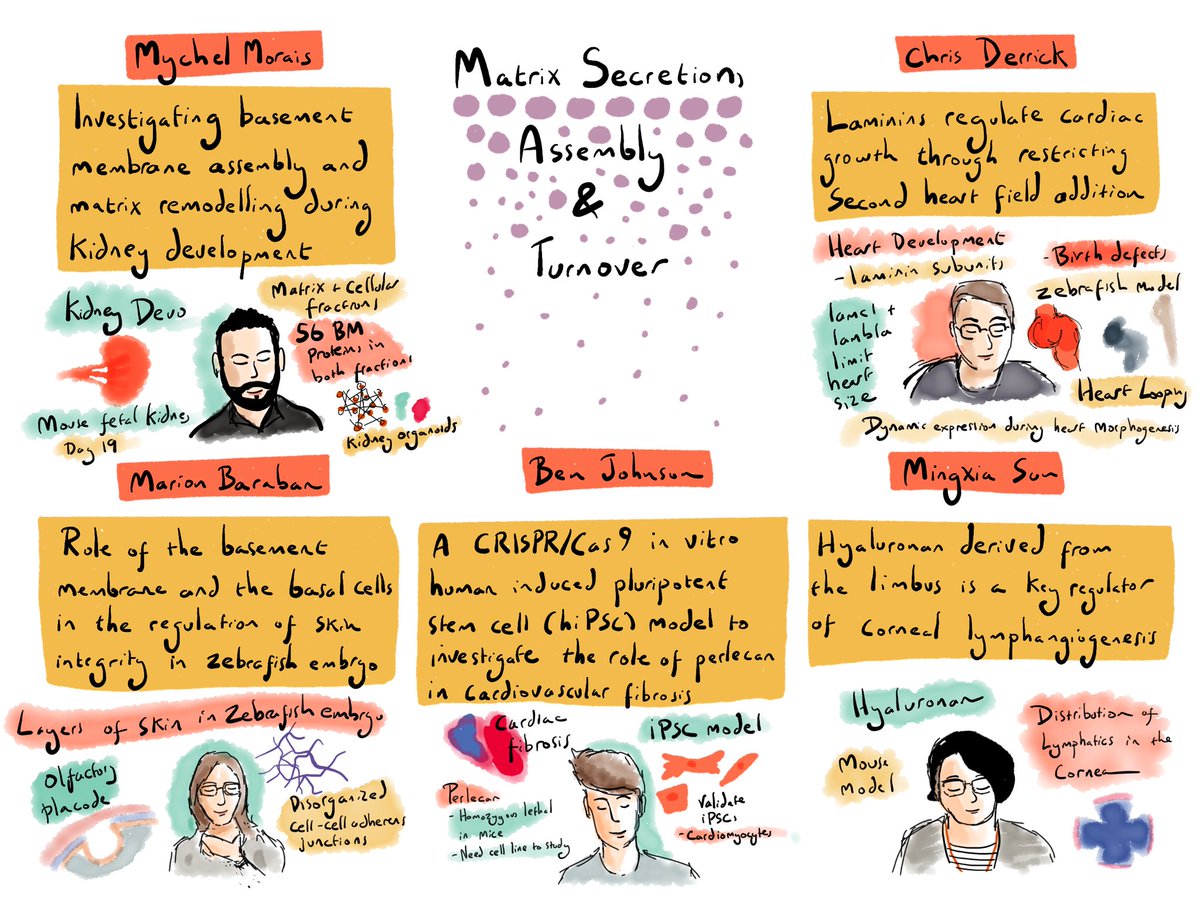 Mychel Morais
Investigating basement
membrane assembly and
matrix remodelling during
Kidney development
Kidney Devo
Matrix + Cellular
fractions
56 BM
Proteins in
both fractions
Mouse fetal Kidney
Day 19
Kidney organoids
Matrix Secretion,
Assembly
&
Turnover
Chris Derrick
Laminins regulate cardiac
growth through restricting
Second heart field addition
Heart Development
- laminin subunits
- Birth defects
Zebrafish model
lamc1 +
lamb1a
limit
heart
size
Heart Looping
Dynamic expression during heart morphogenesis
Marion Baraban
Role of the basement
membrane and the basal cells
in the regulation of skin
integrity in zebrafish embryo
Layers of skin in Zebrafish embryo
Olfactory
placode
Disorganized
cell-cell adherens
junctions
Ben Johnson
A CRISPR/Cas9 in vitro
human induced pluripotent
stem cell (hiPSC) model to
investigate the role of perlecan
in cardiovascular fibrosis
Cardiac
fibrosis
iPSC model
Perlecan
- Homozygous lethal
in mice
- Need cell line to study
Validate
iPSCs
- Cardiomyocytes
Mingxia Sun
Hyaluronan derived from
the limbus is a key regulator
of corneal lymphangiogenesis
Hyaluronan
Mouse
Model
Distribution of
Lymphatics in the
Cornea